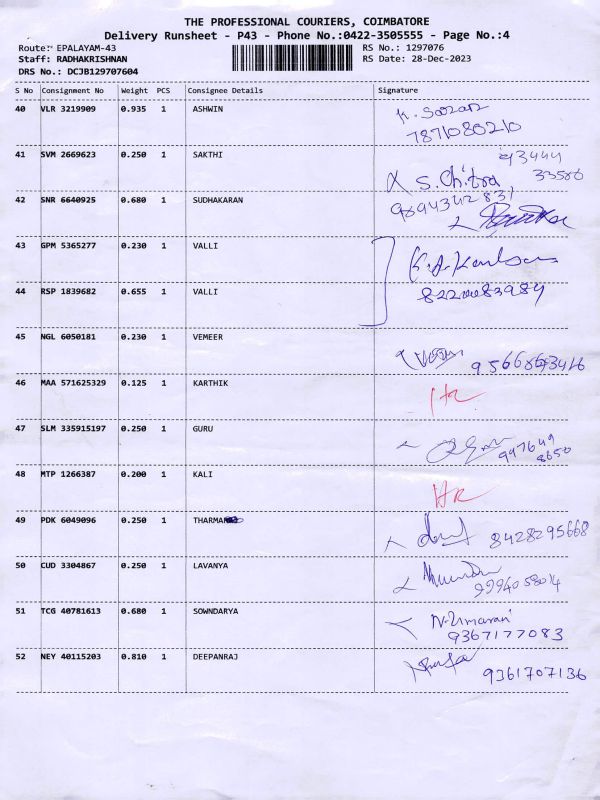 THE PROFESSIONAL COURIERS, COIMBATORE
Delivery Runsheet - P43 - Phone No.:0422-3505555 - Page No.:4
Route: EPALAYAM-43 RS No.: 1297076
Staff: RADHAKRISHNAN RS Date: 28-Dec-2023
DRS No.: DCJB129707604
S No Consignment No Weight PCS Consignee Details Signature
40 VLR 3219909 0.935 1 ASHWIN
7871080210
41 SVM 2669623 0.250 1 SAKTHI 93444
33586
S. Chitra
42 SNR 6640925 0.680 1 SUDHAKARAN 9894342831
43 GPM 5365277 0.230 1 VALLI
44 RSP 1839682 0.655 1 VALLI
45 NGL 6050181 0.230 1 VEMEER
46 MAA 571625329 0.125 1 KARTHIK
47 SLM 335915197 0.250 1 GURU 997649
8650
48 MTP 1266387 0.200 1 KALI HR
49 PDK 6049096 0.250 1 8428295668
50 CUD 3304867 0.250 1 LAVANYA
9994058014
51 TCG 40781613 0.680 1 SOWNDARYA
9367177083
52 NEY 40115203 0.810 1 DEEPANRAJ
9361707136